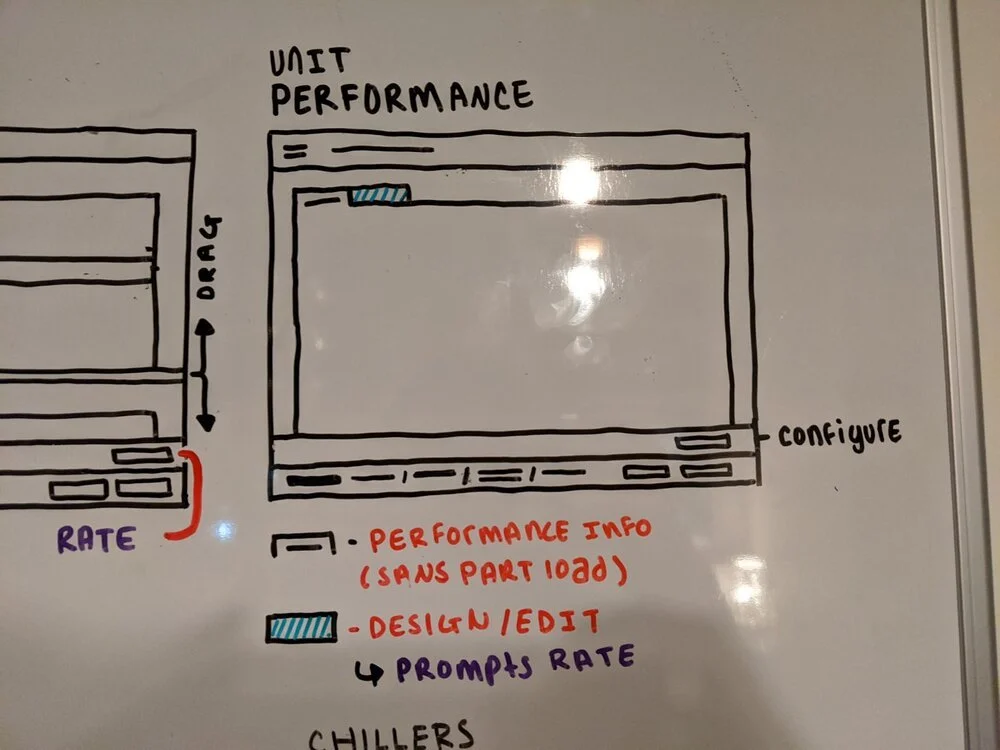 UNIT
PERFORMANCE
DRAG
CONFIGURE
RATE
- PERFORMANCE INFO
(SANS PART LOAD)
- DESIGN/EDIT
↳ PROMPTS RATE
CHILLERS